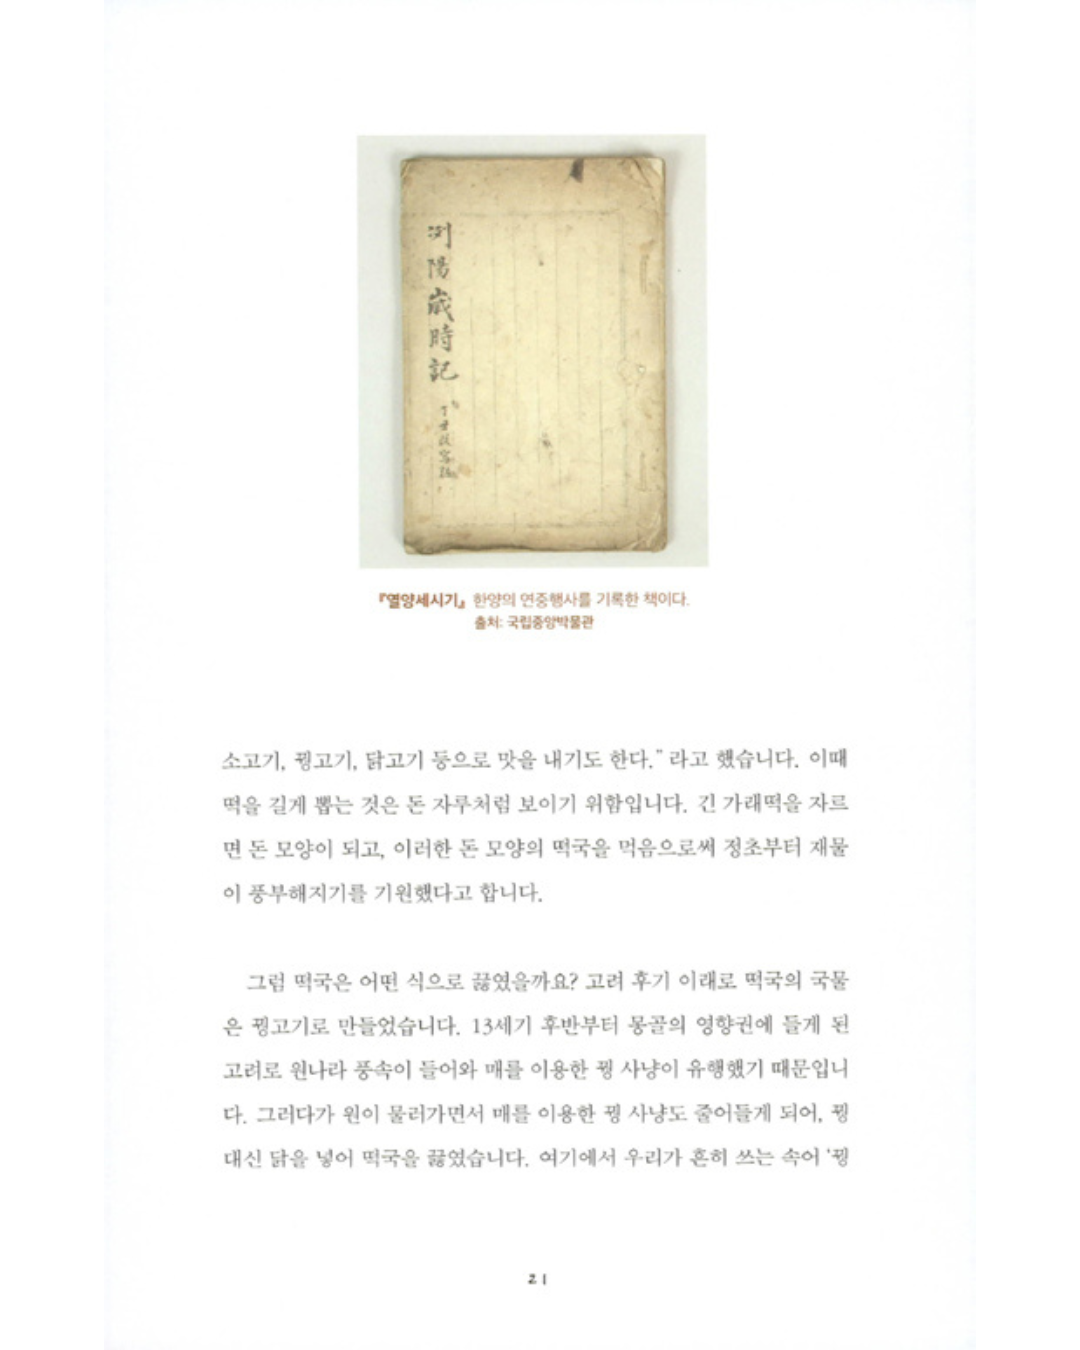 洌陽歲時記
『열양세시기』 한양의 연중행사를 기록한 책이다.
출처: 국립중앙박물관
소고기, 꿩고기, 닭고기 등으로 맛을 내기도 한다.” 라고 했습니다. 이때
떡을 길게 뽑는 것은 돈 자루처럼 보이기 위함입니다. 긴 가래떡을 자르
면 돈 모양이 되고, 이러한 돈 모양의 떡국을 먹음으로써 정초부터 재물
이 풍부해지기를 기원했다고 합니다.
그럼 떡국은 어떤 식으로 끓였을까요? 고려 후기 이래로 떡국의 국물
은 꿩고기로 만들었습니다. 13세기 후반부터 몽골의 영향권에 들게 된
고려로 원나라 풍속이 들어와 매를 이용한 꿩 사냥이 유행했기 때문입니
다. 그러다가 원이 물러가면서 매를 이용한 꿩 사냥도 줄어들게 되어, 꿩
대신 닭을 넣어 떡국을 끓였습니다. 여기에서 우리가 흔히 쓰는 속어 ‘꿩
21